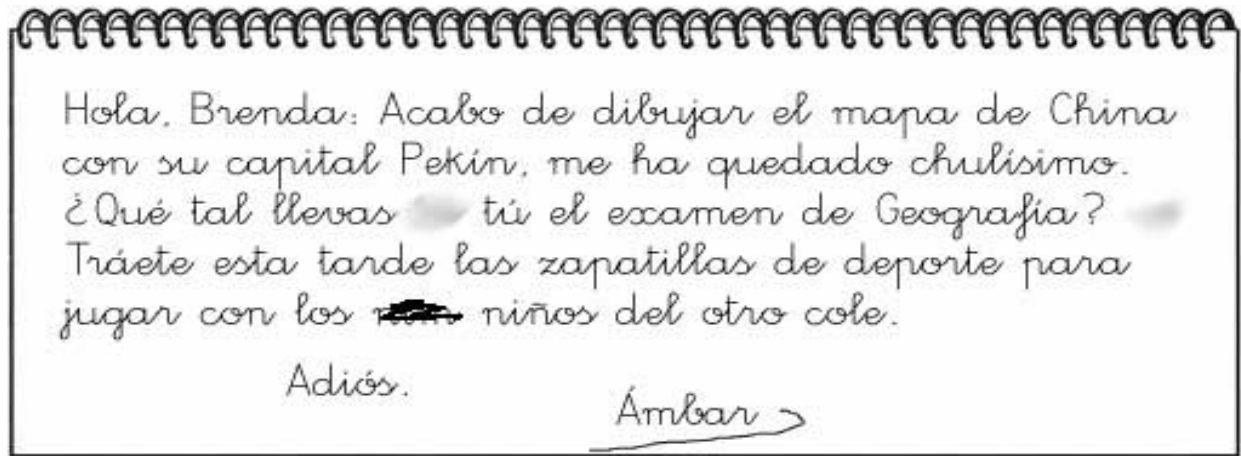 Hola, Brenda: Acabo de dibujar el mapa de China
con su capital Pekín, me ha quedado chulísimo.
¿Qué tal llevas tú el examen de Geografía?
Tráete esta tarde las zapatillas de deporte para
jugar con los niños del otro cole.
Adiós.
Ámbar